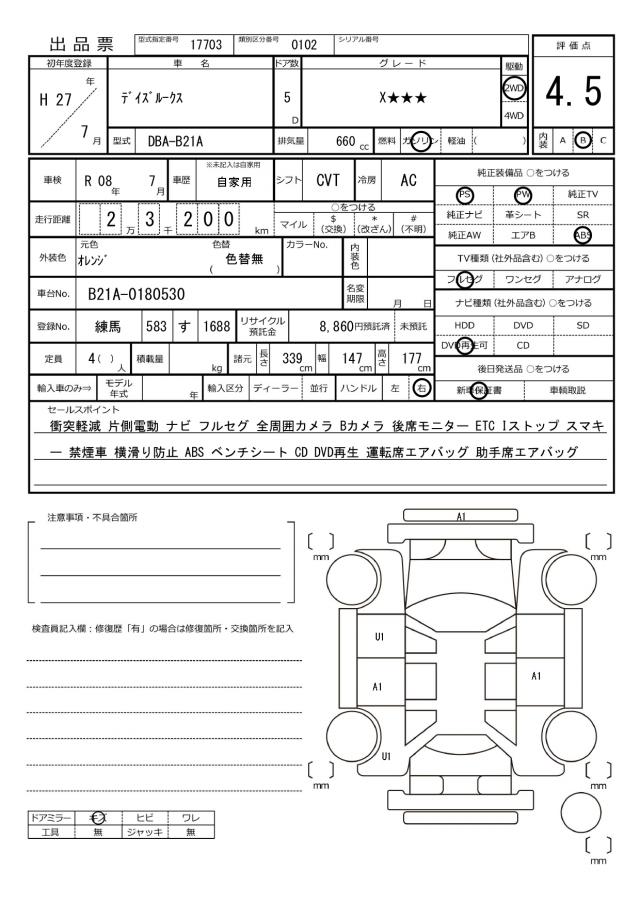 出品票 型式指定番号 17703 類別区分番号 0102 シリアル番号
初年度登録 車 名 ドア数 グレード 駆動 評価点
H 27 年 7 月 ﾃﾞｲｽﾞﾙｰｸｽ 5 D X★★★ 2WD 4WD 4.5
型式 DBA-B21A 排気量 660 cc 燃料 ガソリン 軽油 ( ) 内装 A B C
車検 R 08 年 7 月 車歴 ※未記入は自家用 自家用 シフト CVT 冷房 AC
走行距離 2 万 3 千 2 0 0 km ○をつける マイル $ (交換) * (改ざん) # (不明)
外装色 元色 ｵﾚﾝｼﾞ 色替 ( 色替無 ) カラーNo. 内装色
車台No. B21A-0180530 名変期限 月 日
登録No. 練馬 583 す 1688 リサイクル預託金 8,860円預託済 未預託
定員 4 ( ) 人 積載量 kg 諸元 長さ 339 cm 幅 147 cm 高さ 177 cm
輸入車のみ⇒ モデル年式 年 輸入区分 ディーラー 並行 ハンドル 左 右
純正装備品 ○をつける
PS PW 純正TV
純正ナビ 革シート SR
純正AW エアB ABS
TV種類 (社外品含む) ○をつける
フルセグ ワンセグ アナログ
ナビ種類 (社外品含む) ○をつける
HDD DVD SD
DVD再生可 CD
後日発送品 ○をつける
新車保証書 車輌取説
セールスポイント
衝突軽減 片側電動 ナビ フルセグ 全周囲カメラ Bカメラ 後席モニター ETC Iストップ スマキ
ー 禁煙車 横滑り防止 ABS ベンチシート CD DVD再生 運転席エアバッグ 助手席エアバッグ
注意事項・不具合箇所
検査員記入欄：修復歴「有」の場合は修復箇所・交換箇所を記入
A1
〔 〕 mm 〔 〕 mm
U1
A1 A1
U1
〔 〕 mm 〔 〕 mm
〔 〕 mm
ドアミラー キズ ヒビ ワレ
工具 無 ジャッキ 無